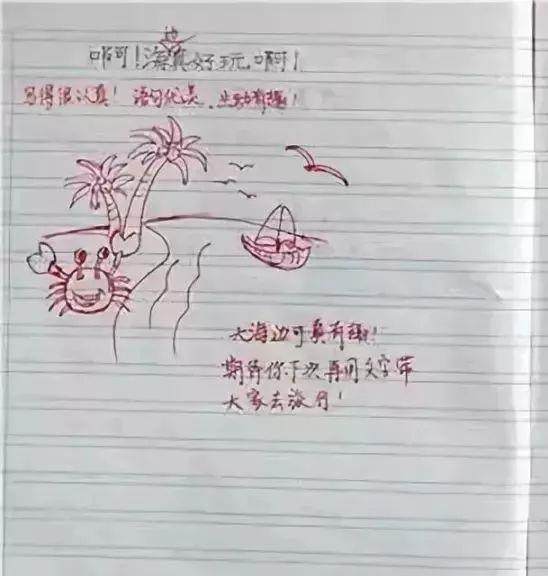 啊！海边真好玩啊！
写得很认真！语句优美，生动有趣！
大海边可真有趣！
期待你下次再用文字带
大家去旅行！